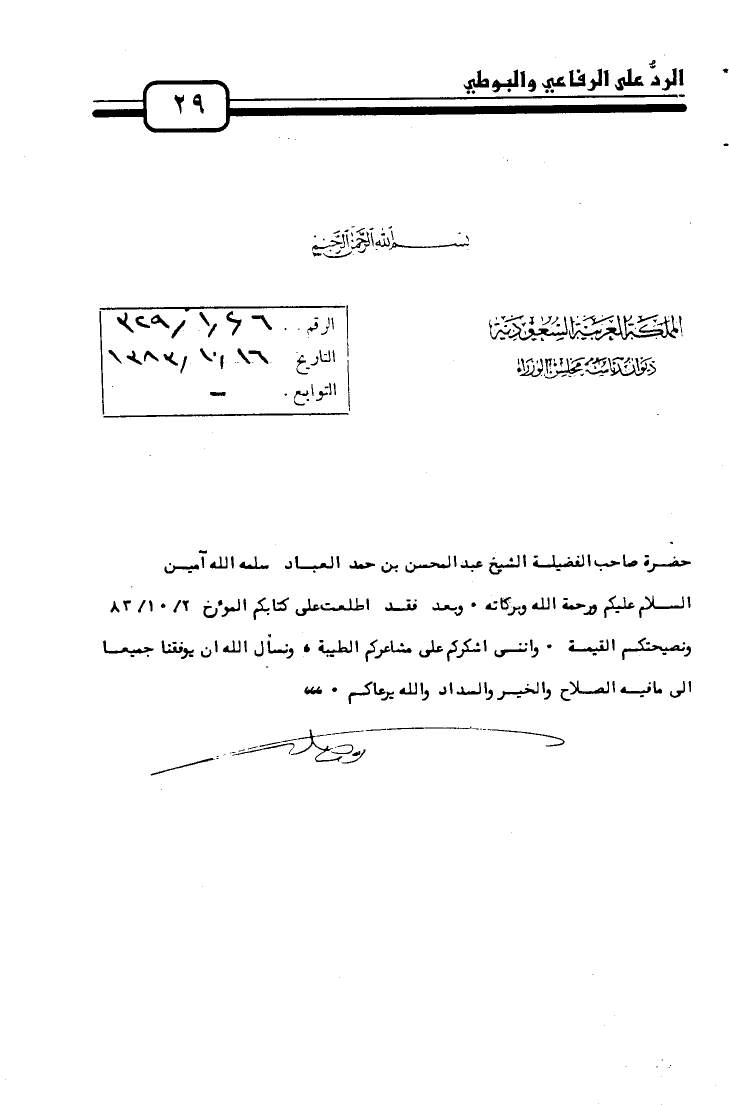 الردُّ على الرفاعي والبوطي
٢٩
بسم الله الرحمن الرحيم
المملكة العربية السعودية
ديوان رئاسة مجلس الوزراء
الرقم
التاريخ ١٣٨٣/١٠/١٦
التوابع . –
حضرة صاحب الفضيلة الشيخ عبدالمحسن بن حمد العباد سلمه الله آمين
السلام عليكم ورحمة الله وبركاته ٠ وبعد فقد اطلعت على كتابكم المؤرخ ٨٣/١٠/٢
ونصيحتكم القيمة ٠ وانني اشكركم على مشاعركم الطيبة ٠ ونسأل الله ان يوفقنا جميعا
الى مافيه الصلاح والخير والسداد والله يرعاكم ٠